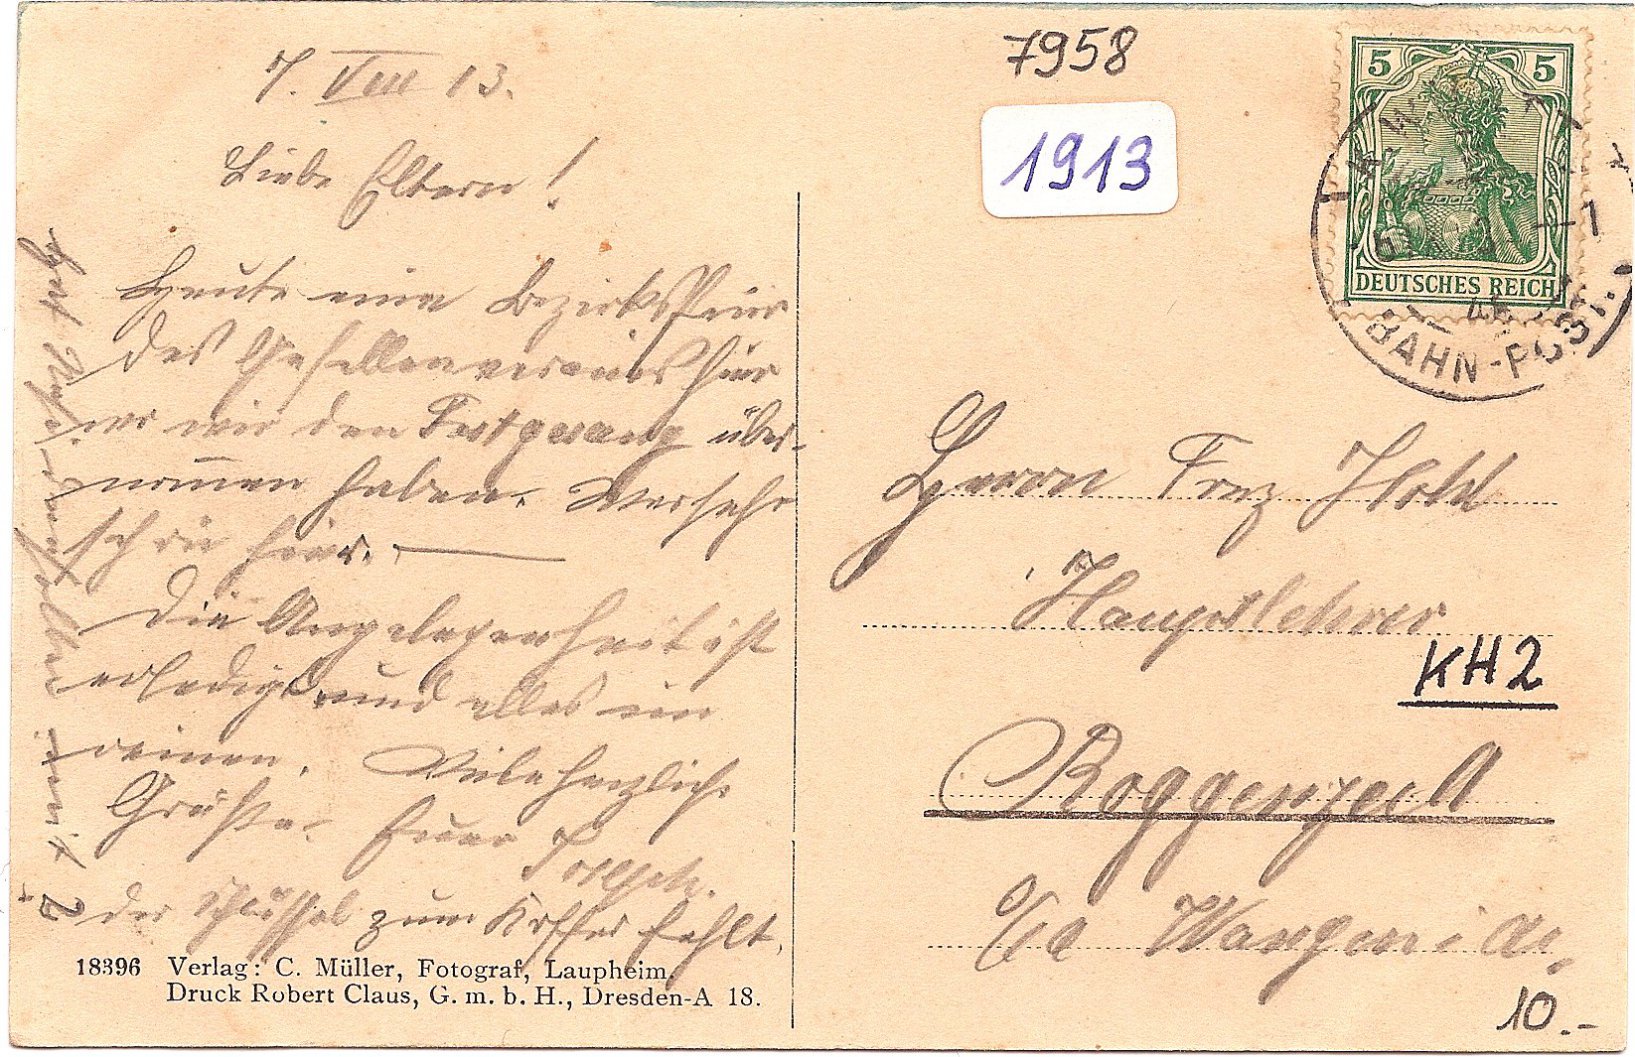 7. VIII 13.
Liebe Eltern!
Heute eine Bezirksfeier
des Gesellenvereins hier
wo wir den Festgesang über-
nommen haben. Wer sehr
schön hier.
Die Angelegenheit ist
erledigt und alles im
reinen. Viele herzliche
Grüße Euer
der Schlüssel zum Koffer fehlt.
18396 Verlag: C. Müller, Fotograf, Laupheim.
Druck Robert Claus, G. m. b. H., Dresden-A 18.
7958
1913
5 5
DEUTSCHES REICH
BAHN-POST
Herrn Frz
Hauptlehrer
KH2
Roggenzell
O/A Wangen i A.
10.-